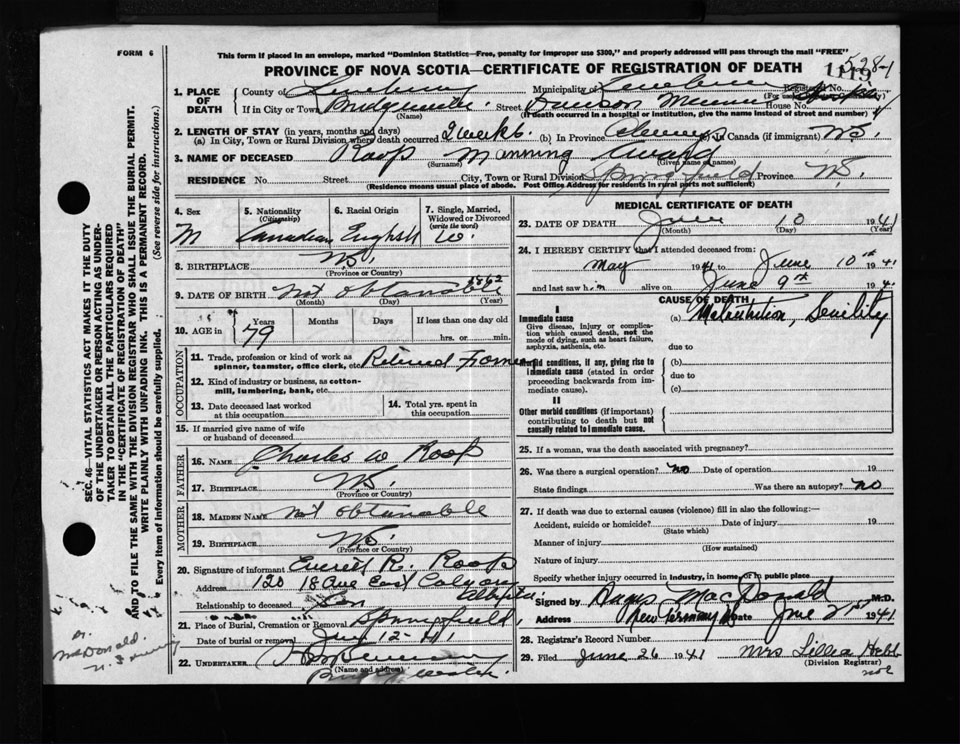 FORM 6
This form if placed in an envelope, marked "Dominion Statistics—Free, penalty for improper use $300," and properly addressed will pass through the mail "FREE"
PROVINCE OF NOVA SCOTIA—CERTIFICATE OF REGISTRATION OF DEATH
1119
1. PLACE OF DEATH County of Lunenburg Municipality of Lunenburg Registered No.
If in City or Town Bridgewater Street Dawson Memorial House No. Hospital
(Name) (If death occurred in a hospital or institution, give the name instead of street and number)
2. LENGTH OF STAY (in years, months and days)
(a) In City, Town or Rural Division where death occurred 2 weeks. (b) In Province Always (c) In Canada (if immigrant) N.S.
3. NAME OF DECEASED Roop Manning Award
(Surname) (Given name or names)
RESIDENCE No. Street City, Town or Rural Division Springfield Province N.S.
(Residence means usual place of abode. Post Office Address for residents in rural parts not sufficient)
4. Sex 5. Nationality (Citizenship) 6. Racial Origin 7. Single, Married, Widowed or Divorced (write the word)
M Canadian English W.
8. BIRTHPLACE N.S.
(Province or Country)
9. DATE OF BIRTH Not obtainable 1862
(Month) (Day) (Year)
10. AGE in Years Months Days If less than one day old
79 hrs. or min.
OCCUPATION
11. Trade, profession or kind of work as spinner, teamster, office clerk, etc. Retired Farmer
12. Kind of industry or business, as cotton-mill, lumbering, bank, etc.
13. Date deceased last worked at this occupation
14. Total yrs. spent in this occupation
15. If married give name of wife or husband of deceased
FATHER
16. NAME Charles W Roop
17. BIRTHPLACE N.S.
(Province or Country)
MOTHER
18. MAIDEN NAME Not obtainable
19. BIRTHPLACE N.S.
(Province or Country)
20. Signature of informant Everett R. Roop
Address 120 18 Ave East Calgary Alberta
Relationship to deceased Son
21. Place of Burial, Cremation or Removal Springfield,
Date of burial or removal June 12-41
22. UNDERTAKER
(Name and address)
MEDICAL CERTIFICATE OF DEATH
23. DATE OF DEATH June 10 1941
(Month) (Day) (Year)
24. I HEREBY CERTIFY that I attended deceased from:
May 1941 to June 10th 1941
and last saw him alive on June 9th 1941
CAUSE OF DEATH
I
Immediate cause (a) Malnutrition, Senility
Give disease, injury or complication which caused death, not the mode of dying, such as heart failure, asphyxia, asthenia, etc.
due to
Morbid conditions, if any, giving rise to immediate cause (stated in order proceeding backwards from immediate cause).
(b)
due to
(c)
II
Other morbid conditions (if important) contributing to death but not causally related to immediate cause.
25. If a woman, was the death associated with pregnancy?
26. Was there a surgical operation? no Date of operation 19
State findings Was there an autopsy? no
27. If death was due to external causes (violence) fill in also the following:—
Accident, suicide or homicide? Date of injury 19
(State which)
Manner of injury
(How sustained)
Nature of injury
Specify whether injury occurred in industry, in home, or in public place
Signed by Angus MacDonald M.D.
Address New Germany NS Date June 21st 1941
28. Registrar's Record Number
29. Filed June 26 1941 Mrs Lillia Hebb
(Division Registrar)
SEC. 46—VITAL STATISTICS ACT MAKES IT THE DUTY OF THE UNDERTAKER OR PERSON ACTING AS UNDERTAKER TO OBTAIN ALL THE PARTICULARS REQUIRED IN THE "CERTIFICATE OF REGISTRATION OF DEATH"
AND TO FILE THE SAME WITH THE DIVISION REGISTRAR WHO SHALL ISSUE THE BURIAL PERMIT.
WRITE PLAINLY WITH UNFADING INK. THIS IS A PERMANENT RECORD.
Every item of information should be carefully supplied. (See reverse side for instructions.)
Dr.
McDonald.